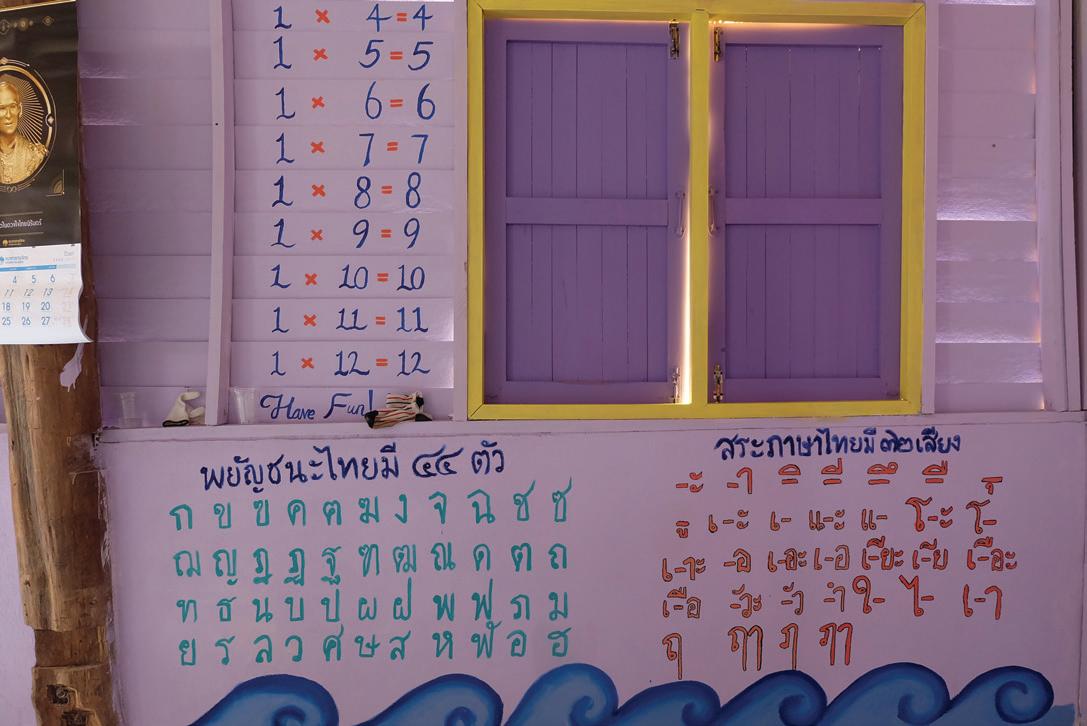 1 × 4 = 4
1 × 5 = 5
1 × 6 = 6
1 × 7 = 7
1 × 8 = 8
1 × 9 = 9
1 × 10 = 10
1 × 11 = 11
1 × 12 = 12
Have Fun!
4 5 6
11 12 13
18 19 20
25 26 27
พยัญชนะไทยมี ๔๔ ตัว
ก ข ฃ ค ฅ ฆ ง จ ฉ ช ซ
ฌ ญ ฎ ฏ ฐ ฑ ฒ ณ ด ต ถ
ท ธ น บ ป ผ ฝ พ ฟ ภ ม
ย ร ล ว ศ ษ ส ห ฬ อ ฮ
สระภาษาไทยมี ๓๒ เสียง
-ะ -า -ิ -ี -ึ -ื -ุ
-ู เ-ะ เ- แ-ะ แ- โ-ะ โ-
เ-าะ -อ เ-อะ เ-อ เ-ียะ เ-ีย เ-ือะ
เ-ือ -ัวะ -ัว -ำ ใ- ไ- เ-า
ฤ ฤๅ ฦ ฦๅ